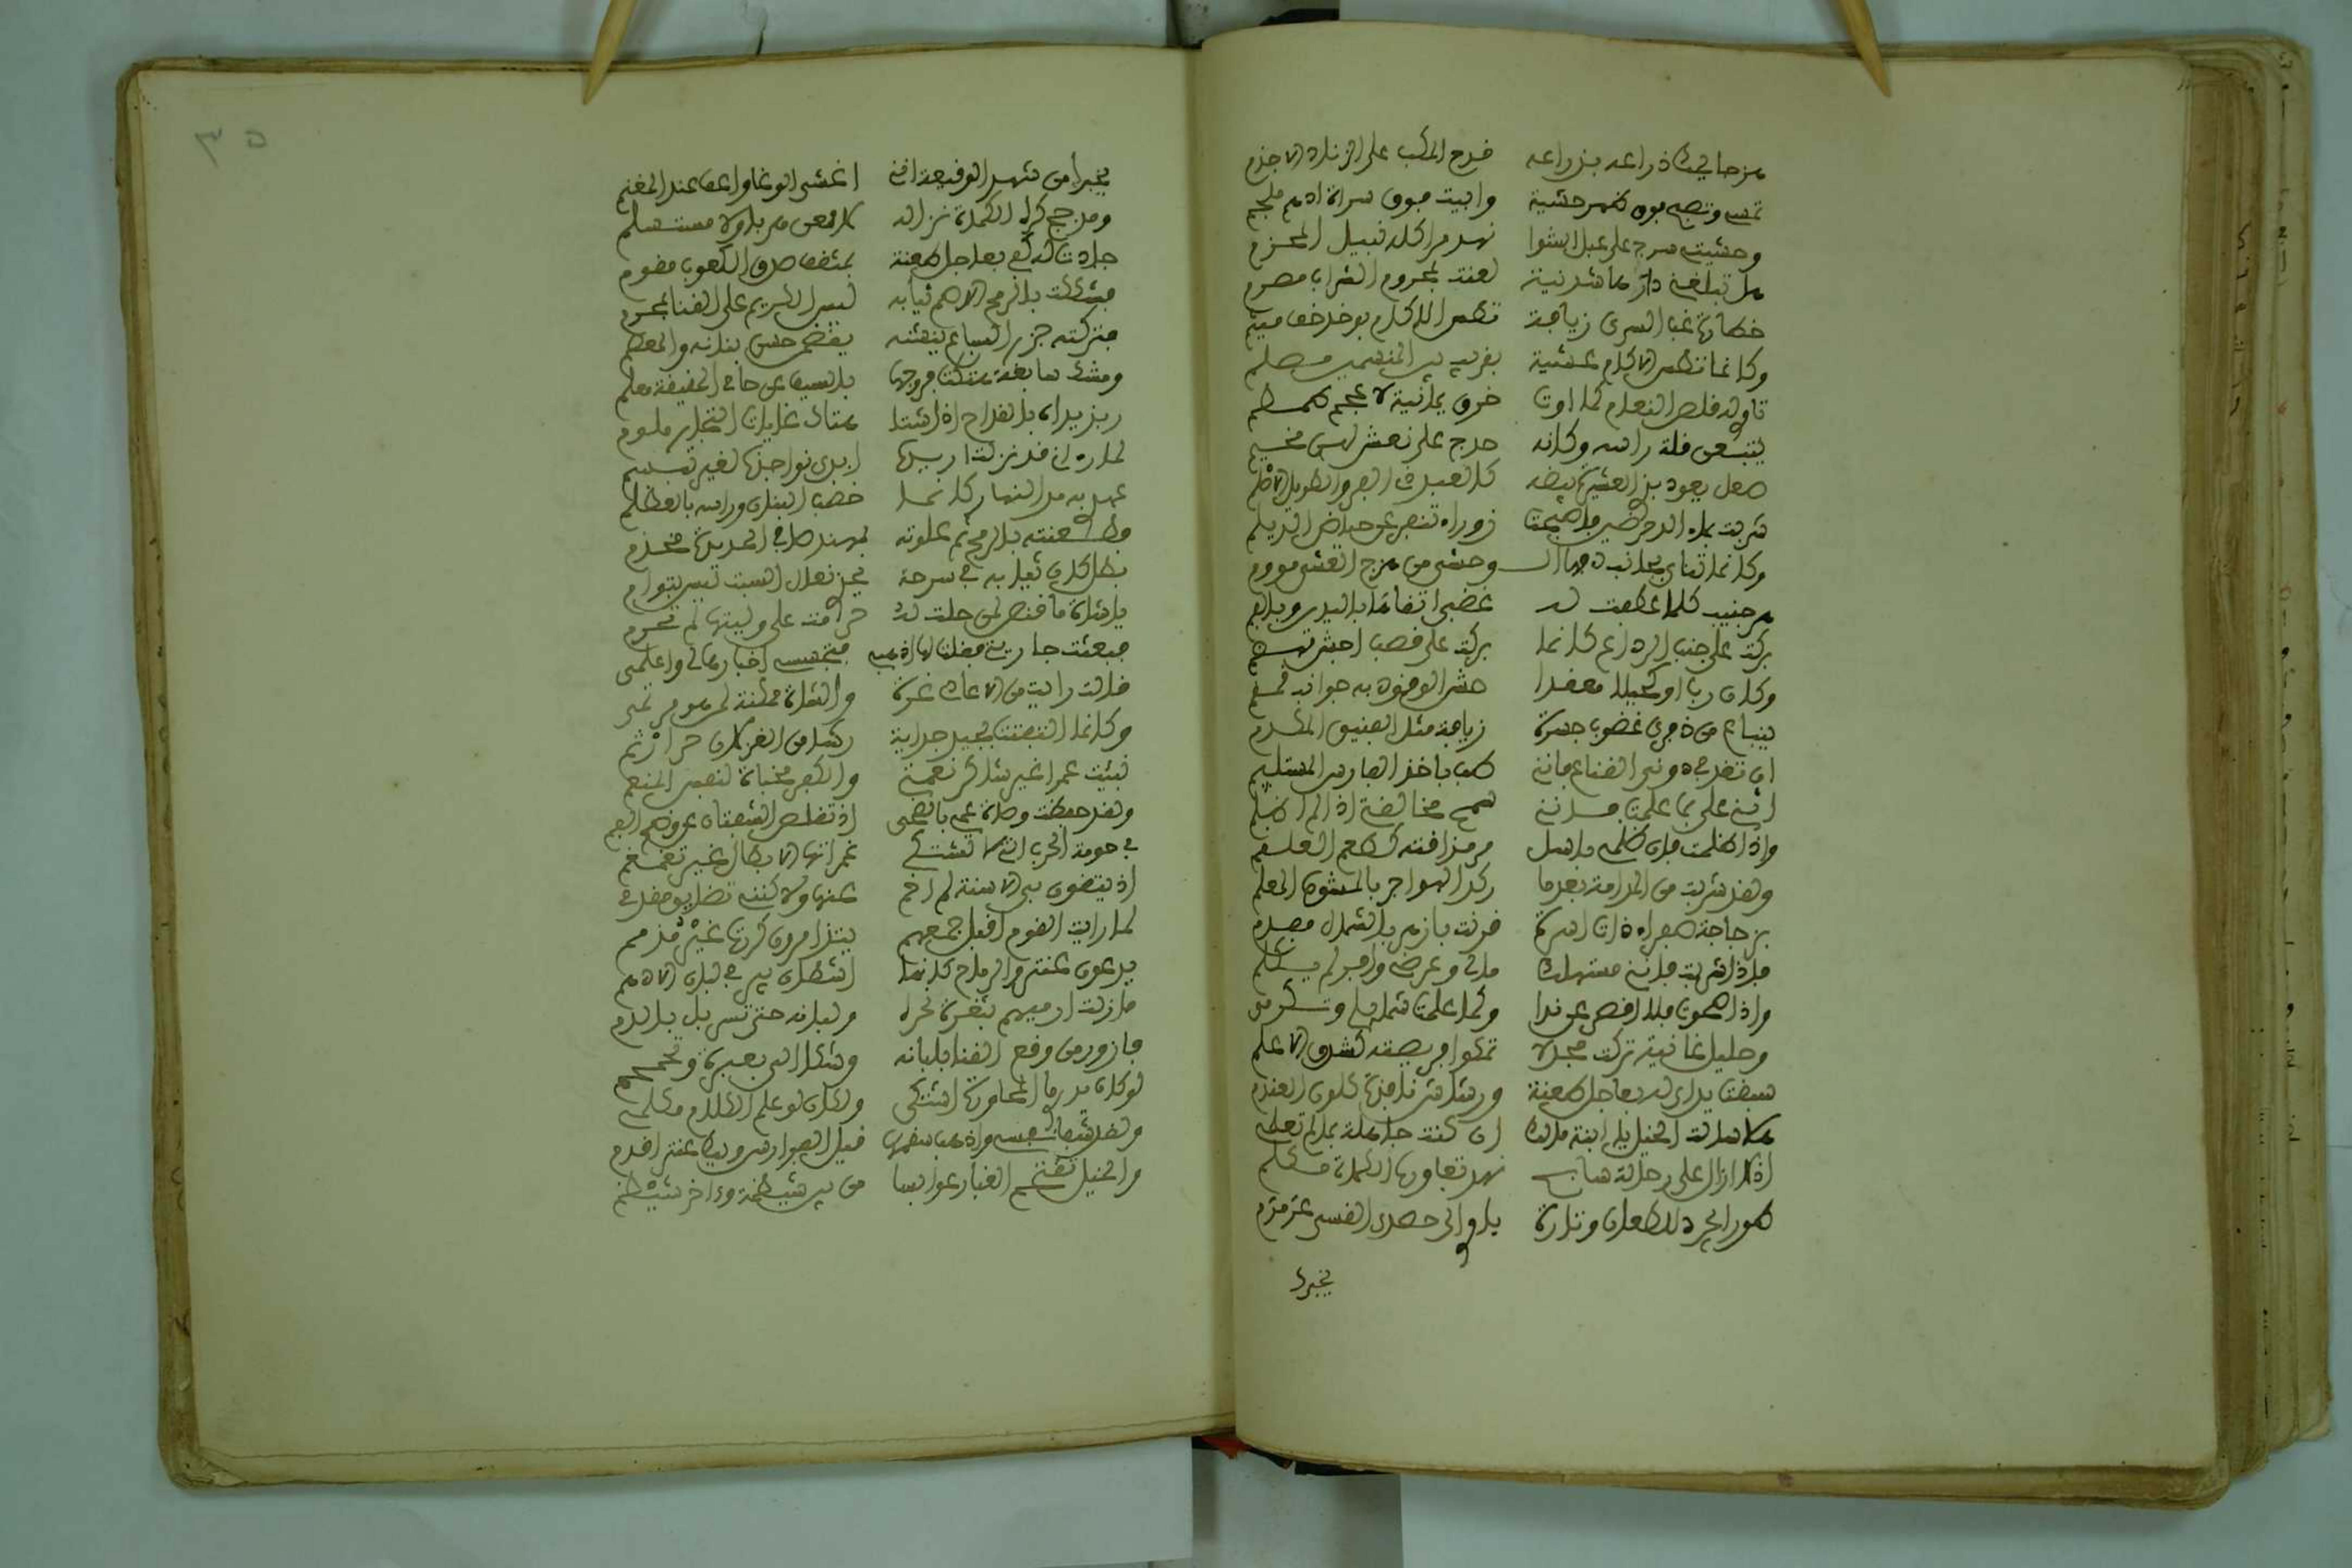 هزجا يحك ذراعه بذراعه قدح المكب على الزناد الاجذم
تمسي وتصبح فوق ظهر حشية وابيت فوق سراة ادهم ملجم
وحشيتي سرج على عبل الشوا نهد مراكله نبيل المحزم
هل تبلغني دارها شدنية لعنت بمحروم الشراب مصرم
خطارة غب السرى زيافة تطس الاكام بوخد خف ميثم
وكانما تطس الاكام عشية بقريب بين المنسمين مصلم
تاوي له قلص النعام كما اوت حزق يمانية لاعجم طمطم
يتبعن قلة راسه وكانه حدج على نعش لهن مخيم
صعل يعود بذي العشيرة بيضه كالعبد ذي الفرو الطويل الاصلم
شربت بماء الدحرضين فاصبحت زوراء تنفر عن حياض الديلم
وكانما تناى بجانب دفها الوحشي من هزج العشي مووم
هر جنيب كلما عطفت له غضبى اتقاها باليدين وبالفم
بركت على جنب الرداع كانما بركت على قصب اجش مهضم
وكان ربا او كحيلا معقدا حش الوقود به جوانب قمقم
ينباع من ذفرى غضوب جسرة زيافة مثل الفنيق المكدم
ان تغدفي دوني القناع فانني طب باخذ الفارس المستلئم
اثني علي بما علمت فانني سمح مخالقتي اذا لم اظلم
واذا ظلمت فان ظلمي باسل مر مذاقته كطعم العلقم
ولقد شربت من المدامة بعدما ركد الهواجر بالمشوف المعلم
بزجاجة صفراء ذات اسرة قرنت بازهر بالشمال مفدم
فاذا شربت فانني مستهلك مالي وعرضي وافر لم يكلم
واذا صحوت فلا اقصر عن ندا وكما علمت شمايلي وتكرمي
وحليل غانية تركت مجدلا تمكو فريصته كشدق الاعلم
سبقت يداي له بعاجل طعنة ورشاش نافذة كلون العندم
هلا سالت الخيل يا ابنة مالك ان كنت جاهلة بما لم تعلمي
اذ لا ازال على رحالة سابح نهد تعاوره الكماة مكلم
طورا يجرد للطعان وتارة ياوي الى حصد القسي عرمرم
يخبرك
٣٥
يخبرك من شهد الوقيعة انني اغشى الوغا واعف عند المغنم
ومدجج كره الكماة نزاله لا ممعن هربا ولا مستسلم
جادت له كفي بعاجل طعنة بمثقف صدق الكعوب مقوم
فشككت بالرمح الاصم ثيابه ليس الكريم على القنا بمحرم
فتركته جزر السباع ينشنه يقضمن حسن بنانه والمعصم
ومشك سابغة هتكت فروجها بالسيف عن حامي الحقيقة معلم
ربذ يداه بالقداح اذا شتا هتاك غايات التجار ملوم
لما رءاني قد نزلت اريده ابدى نواجذه لغير تبسم
عهدي به مد النهار كانما خضب البنان وراسه بالعظلم
فطعنته بالرمح ثم علوته بمهند صافي الحديدة مخذم
بطل كان ثيابه في سرحة يحذى نعال السبت ليس بتوام
يا شاة ما قنص لمن حلت له حرمت علي وليتها لم تحرم
فبعثت جاريتي فقلت لها اذهبي فتجسسي اخبارها لي واعلمي
قالت رايت من الاعادي غرة والشاة ممكنة لمن هو مرتمى
وكانما التفتت بجيد جداية رشا من الغزلان حر ارثم
نبئت عمرا غير شاكر نعمتي والكفر مخبثة لنفس المنعم
ولقد حفظت وصاة عمي بالضحى اذ تقلص الشفتان عن وضح الفم
في حومة الحرب التي لا تشتكي غمراتها الابطال غير تغمغم
اذ يتقون بي الاسنة لم اخم عنها ولاكنني تضايق مقدمي
لما رايت القوم اقبل جمعهم يتذامرون كررت غير مذمم
يدعون عنتر والرماح كانها اشطان بير في لبان الادهم
ما زلت ارميهم بثغرة نحره ولبانه حتى تسربل بالدم
فازور من وقع القنا بلبانه وشكا الي بعبرة وتحمحم
لو كان يدري ما المحاورة اشتكى ولكان لو علم الكلام مكلمي
ولقد شفا نفسي واذهب سقمها قيل الفوارس ويك عنتر اقدم
والخيل تقتحم الغبار عوابسا من بين شيظمة وءاخر شيظم